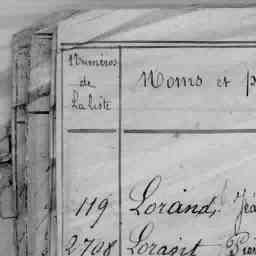 Numéros
de
La liste
Noms et p
119 Lorand, Jea
2798 Lorant Pier